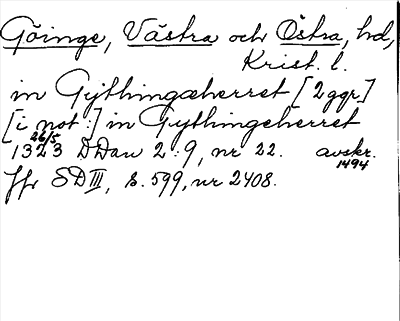 Göinge, Västra och Östra, hd,
Krist. l.
in Gythingæherret [2 ggr.]
[i not.:] in Gythingeherret
1323 26/5 DDan 2:9, nr 22. avskr. 1494
Jfr SD III, s. 599, nr 2408.